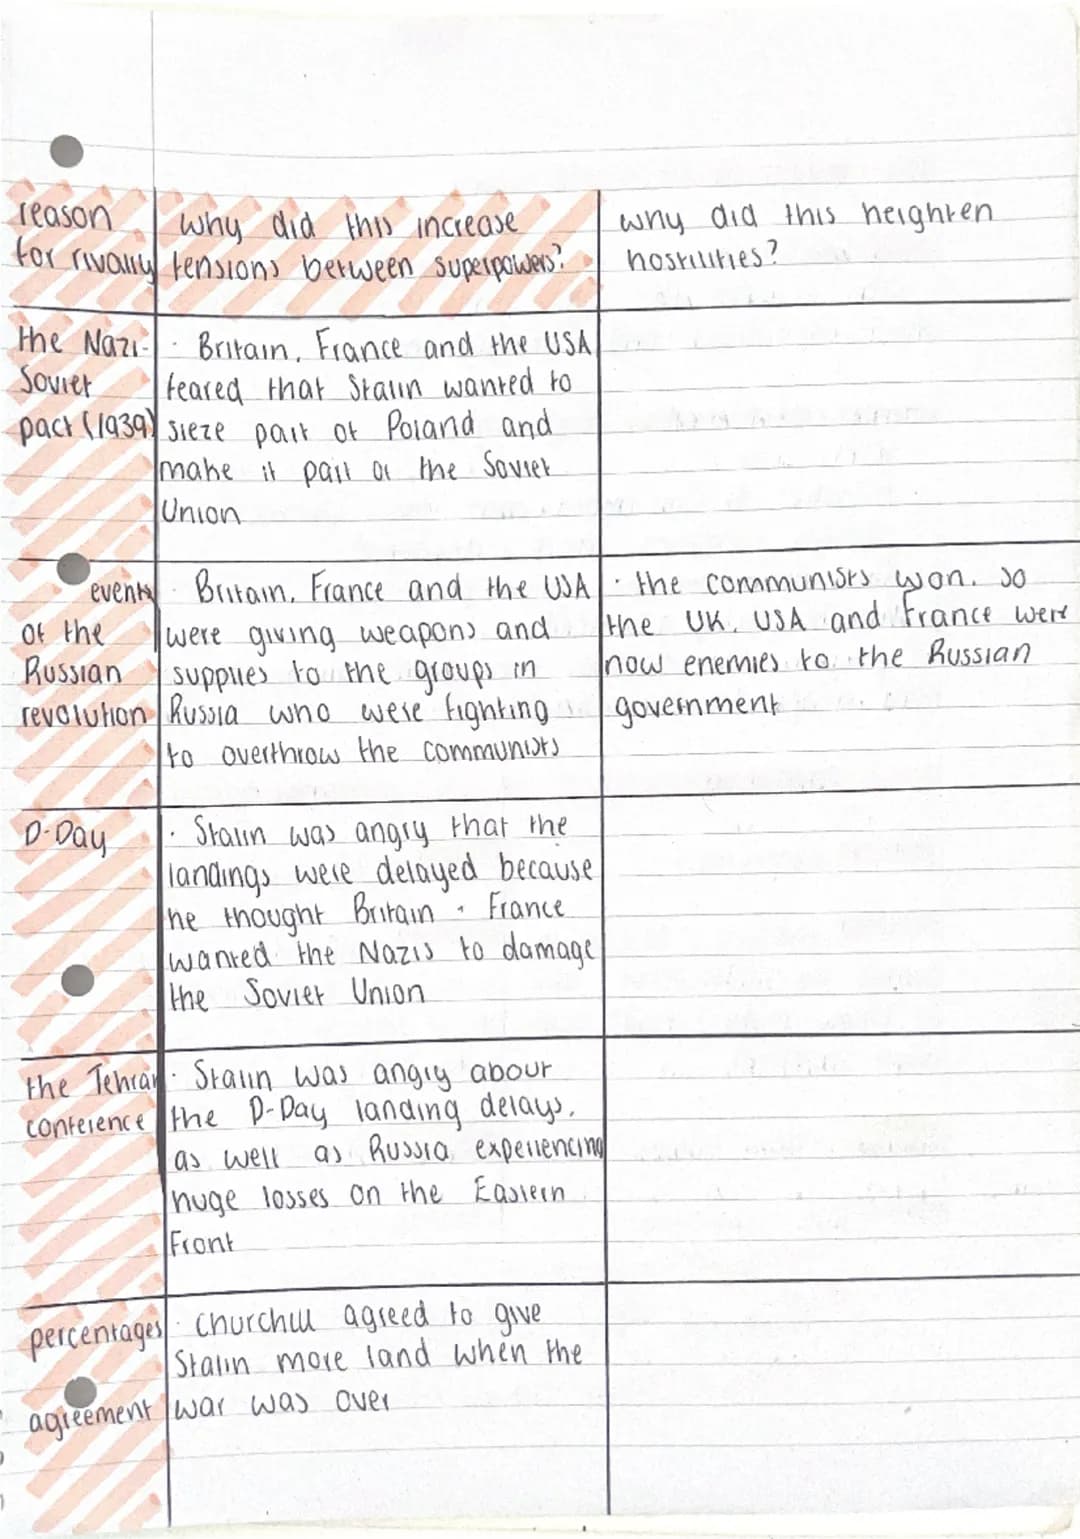 reason
for rivalry
why did this increase
tensions between superpowers?
why did this heighten
hostilities?
the Nazi-
Soviet
pact (1939)
· Britain, France and the USA
feared that Stalin wanted to
sieze part of Poland and
make it part of the Soviet
Union
events
of the
Russian
revolution
· Britain, France and the USA
were giving weapons and
supplies to the groups in
Russia who were fighting
to overthrow the communists
· the communists won. so
the UK, USA and France were
now enemies to the Russian
government
D-Day
· Stalin was angry that the
landings were delayed because
he thought Britain + France
wanted the Nazis to damage
the Soviet Union
the Tehran
conference
· Stalin was angry about
the D-Day landing delays,
as well as Russia experiencing
huge losses on the Eastern
Front
percentages
agreement
· Churchill agreed to give
Stalin more land when the
war was over